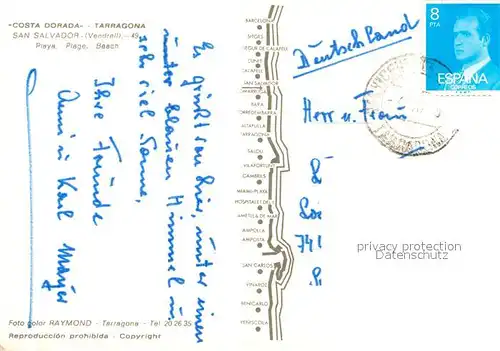 "COSTA DORADA" - TARRAGONA
SAN SALVADOR - (Vendrell). - 49
Playa, Plage, Beach
Es grüßt von hier, unter einem
unter blauen Himmel u.
sehr viel Sonne,
Ihre Freunde
Anni u. Karl Mayer
Foto color RAYMOND - Tarragona - Tel 20 26 35
Reproducción prohibida - Copyright
BARCELONA
SITGES
CUNIT
CALAFELL
SAN SALVADOR
TORREDEMBARRA
ALTAFULLA
TARRAGONA
SALOU
VILAFORTUNY
CAMBRILS
MIAMI-PLAYA
HOSPITALET
AMETLLA DE MAR
AMPOLLA
AMPOSTA
SAN CARLOS
VINAROZ
BENICARLO
PEÑISCOLA
Deutschland
8
PTA
ESPAÑA
CORREOS
Herr u. Frau
741
privacy protection
Datenschutz